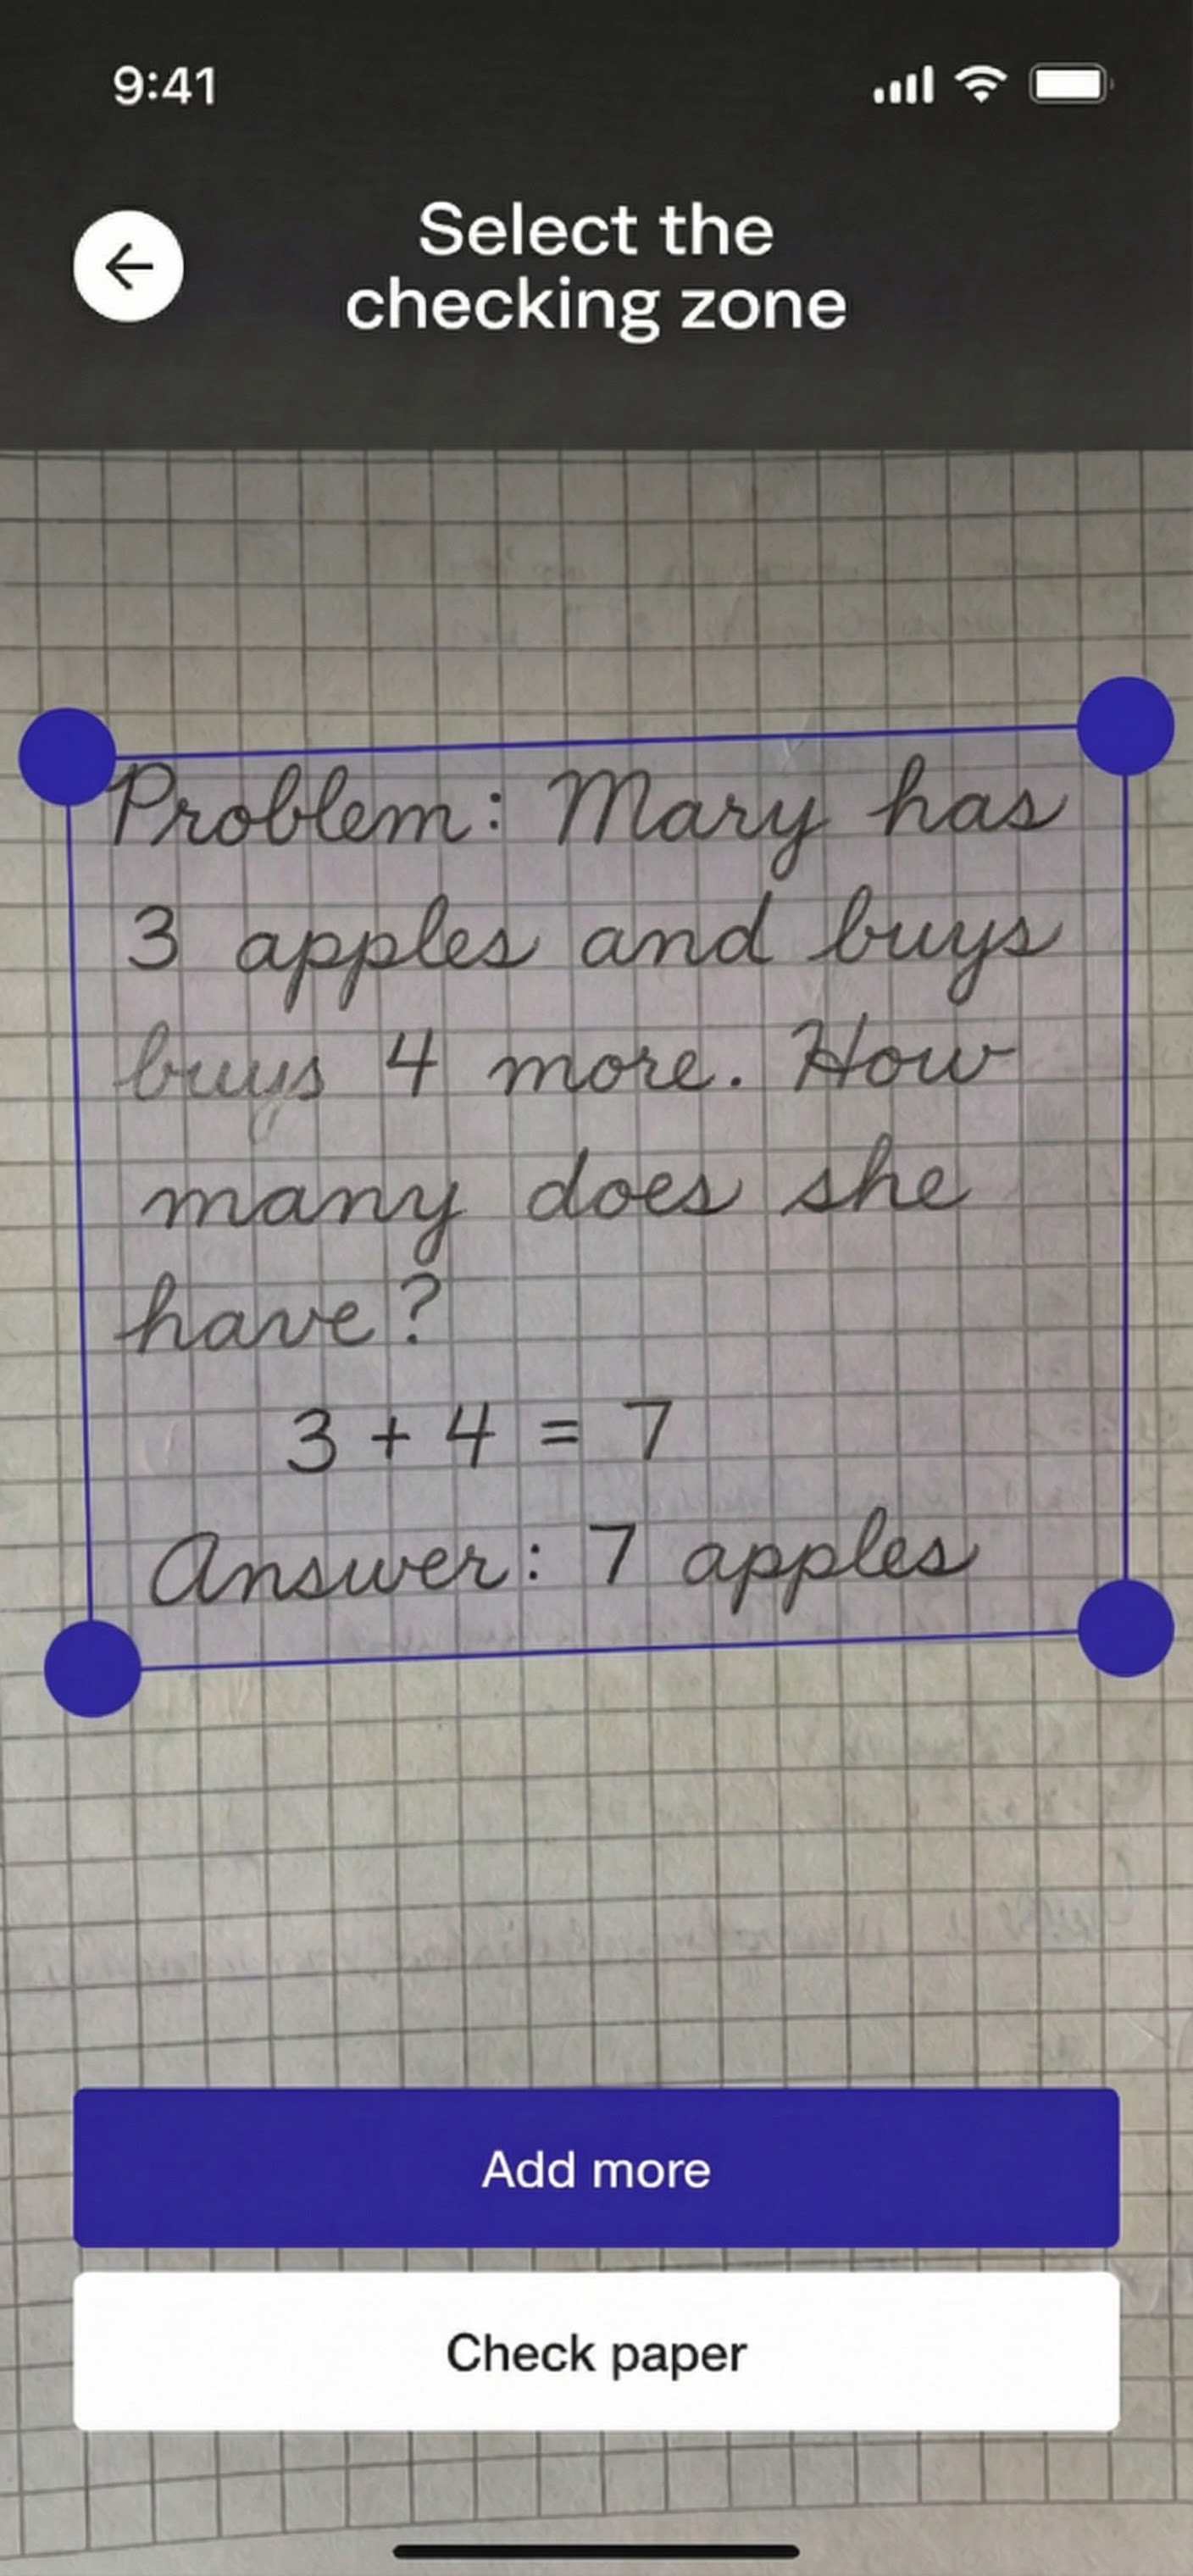 9:41
Select the
checking zone
Problem: Mary has
3 apples and buys
buys 4 more. How
many does she
have?
3 + 4 = 7
Answer: 7 apples
Add more
Check paper